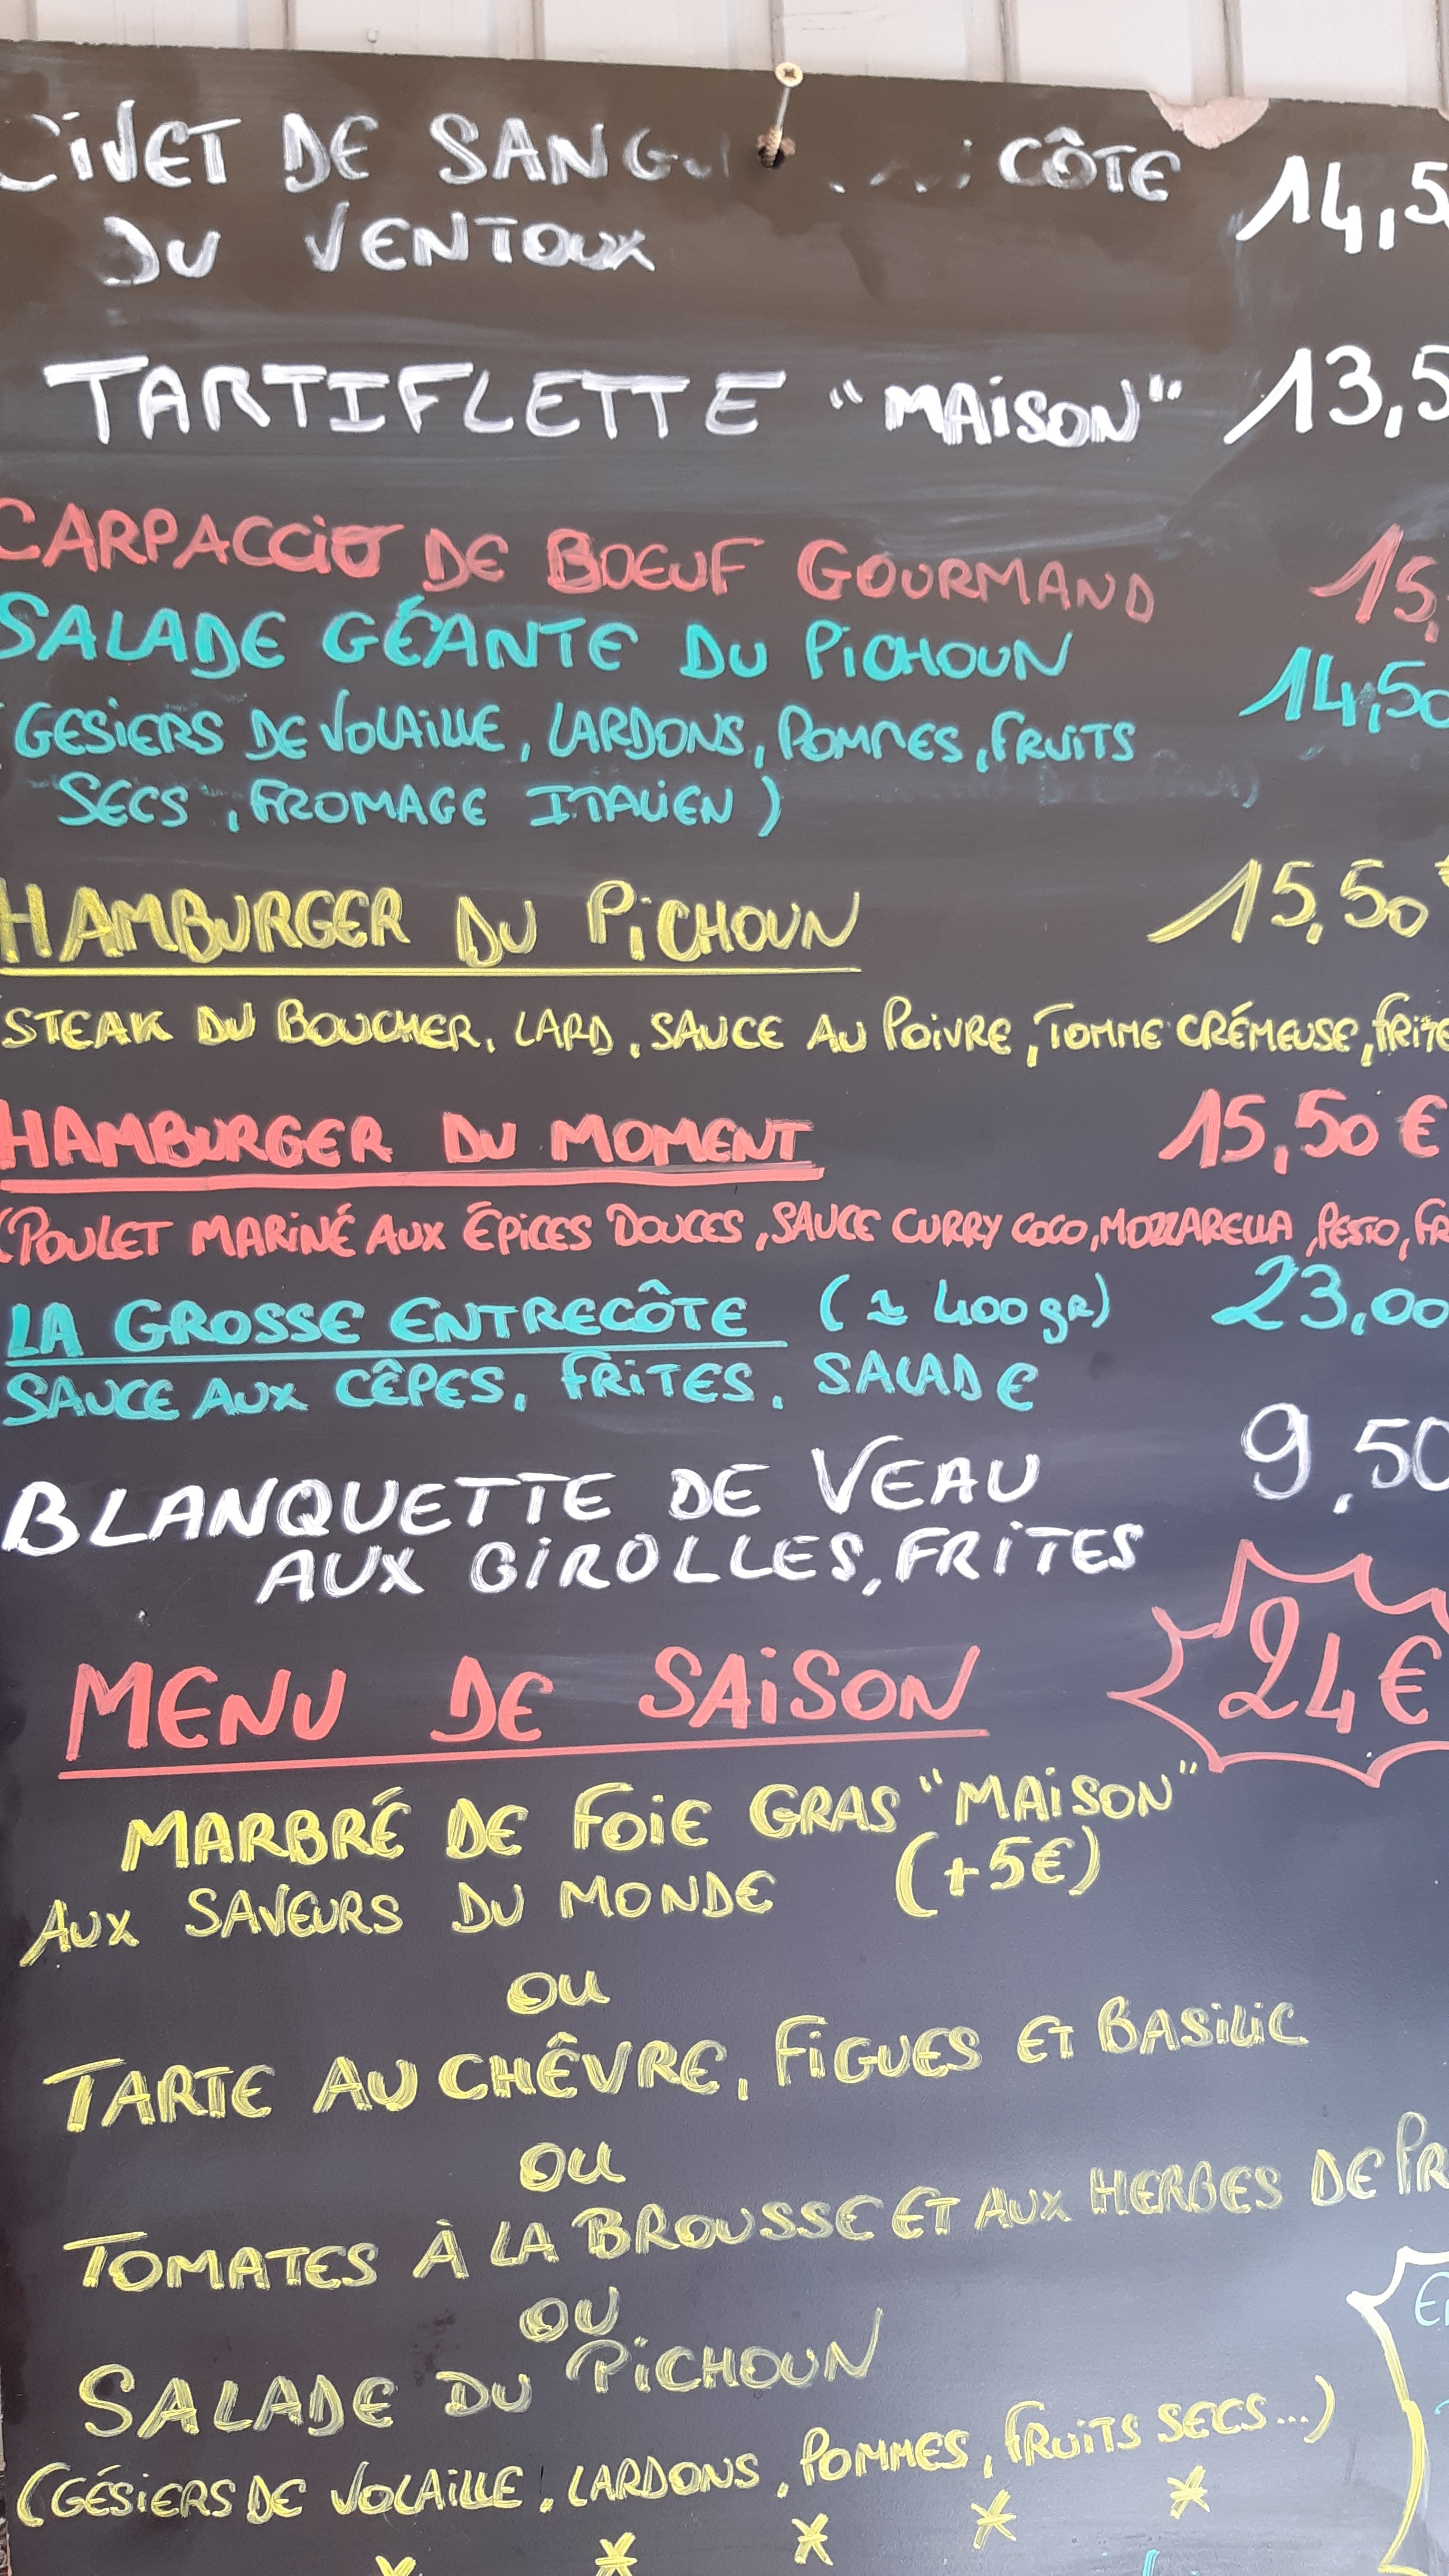 CIVET DE CÔTE 14,5
DU VENTOUX
TARTIFLETTE "MAISON" 13,5
CARPACCIO DE BOEUF GOURMAND 15,
SALADE GÉANTE DU PICHOUN 14,50
(GESIERS DE VOLAILLE, LARDONS, POMMES, FRUITS
SECS, FROMAGE ITALIEN)
HAMBURGER DU PICHOUN 15,50 €
STEAK DU BOUCHER, LARD, SAUCE AU POIVRE, TOMME CRÉMEUSE, FRITE
HAMBURGER DU MOMENT 15,50 €
(POULET MARINÉ AUX ÉPICES DOUCES, SAUCE CURRY COCO, MOZZARELLA, PESTO, FR
LA GROSSE ENTRECÔTE (≈ 400 gR) 23,00
SAUCE AUX CÊPES, FRITES, SALADE
BLANQUETTE DE VEAU 9,50
AUX GIROLLES, FRITES
MENU DE SAISON 24€
MARBRÉ DE FOIE GRAS "MAISON"
AUX SAVEURS DU MONDE (+5€)
OU
TARTE AU CHÊVRE, FIGUES ET BASILIC
OU
TOMATES À LA BROUSSE ET AUX HERBES DE PR
OU
SALADE DU PICHOUN
(GÉSIERS DE VOLAILLE, LARDONS, POMMES, FRUITS SECS...)